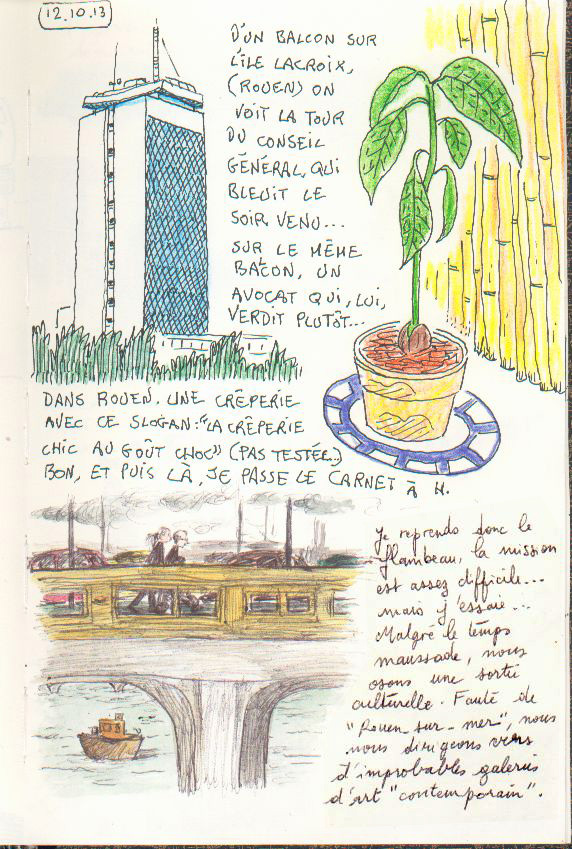 12.10.13
D'UN BALCON SUR
L'ÎLE LACROIX,
(ROUEN) ON
VOIT LA TOUR
DU CONSEIL
GÉNÉRAL, QUI
BLEUIT LE
SOIR VENU...
SUR LE MÊME
BALCON, UN
AVOCAT QUI, LUI,
VERDIT PLUTÔT...
DANS ROUEN, UNE CRÊPERIE
AVEC CE SLOGAN : "LA CRÊPERIE
CHIC AU GOÛT CHOC" (PAS TESTÉE.)
BON, ET PUIS LÀ, JE PASSE LE CARNET À H.
Je reprends donc le
flambeau, la mission
est assez difficile...
mais j'essaie...
Malgré le temps
maussade, nous
osons une sortie
culturelle. Faute de
"Rouen-sur-mer", nous
nous dirigeons vers
d'improbables galeries
d'art "contemporain".